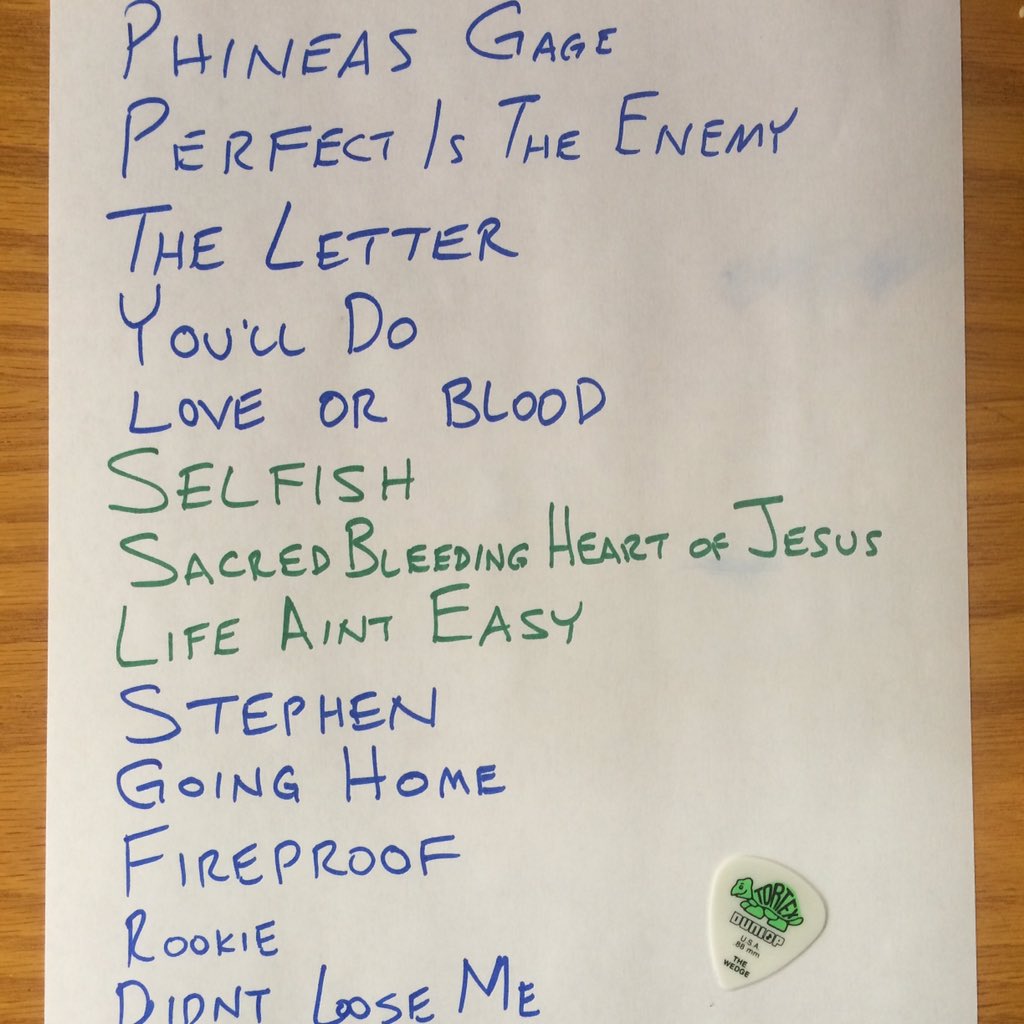 PHINEAS GAGE
PERFECT IS THE ENEMY
THE LETTER
YOU'LL DO
LOVE OR BLOOD
SELFISH
SACRED BLEEDING HEART OF JESUS
LIFE AINT EASY
STEPHEN
GOING HOME
FIREPROOF
ROOKIE
DIDNT LOOSE ME
TORTEX
DUNLOP
U.S.A.
.88 mm
THE
WEDGE